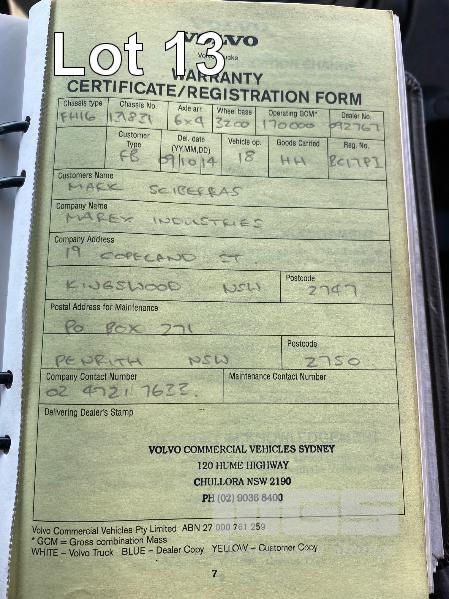 Lot 13
VOLVO
Volvo Trucks
WARRANTY
CERTIFICATE/REGISTRATION FORM
Chassis type Chassis No. Axle arr. Wheel base Operating GCM* Dealer No.
FH16 131831 6x4 3200 170000 092767
Customer Type Del. date (YY,MM,DD) Vehicle op. Goods Carried Reg. No.
FB 09/10/14 18 HH BC17PI
Customers Name
MARK SCIBERRAS
Company Name
MAREX INDUSTRIES
Company Address
19 COPELAND ST
KINGSWOOD NSW Postcode 2747
Postal Address for Maintenance
PO BOX 771
PENRITH NSW Postcode 2750
Company Contact Number Maintenance Contact Number
02 4721 7622.
Delivering Dealer's Stamp
VOLVO COMMERCIAL VEHICLES SYDNEY
120 HUME HIGHWAY
CHULLORA NSW 2190
PH (02) 9036 8400
Volvo Commercial Vehicles Pty Limited ABN 27 000 761 259
* GCM = Gross combination Mass
WHITE – Volvo Truck BLUE – Dealer Copy YELLOW – Customer Copy
7